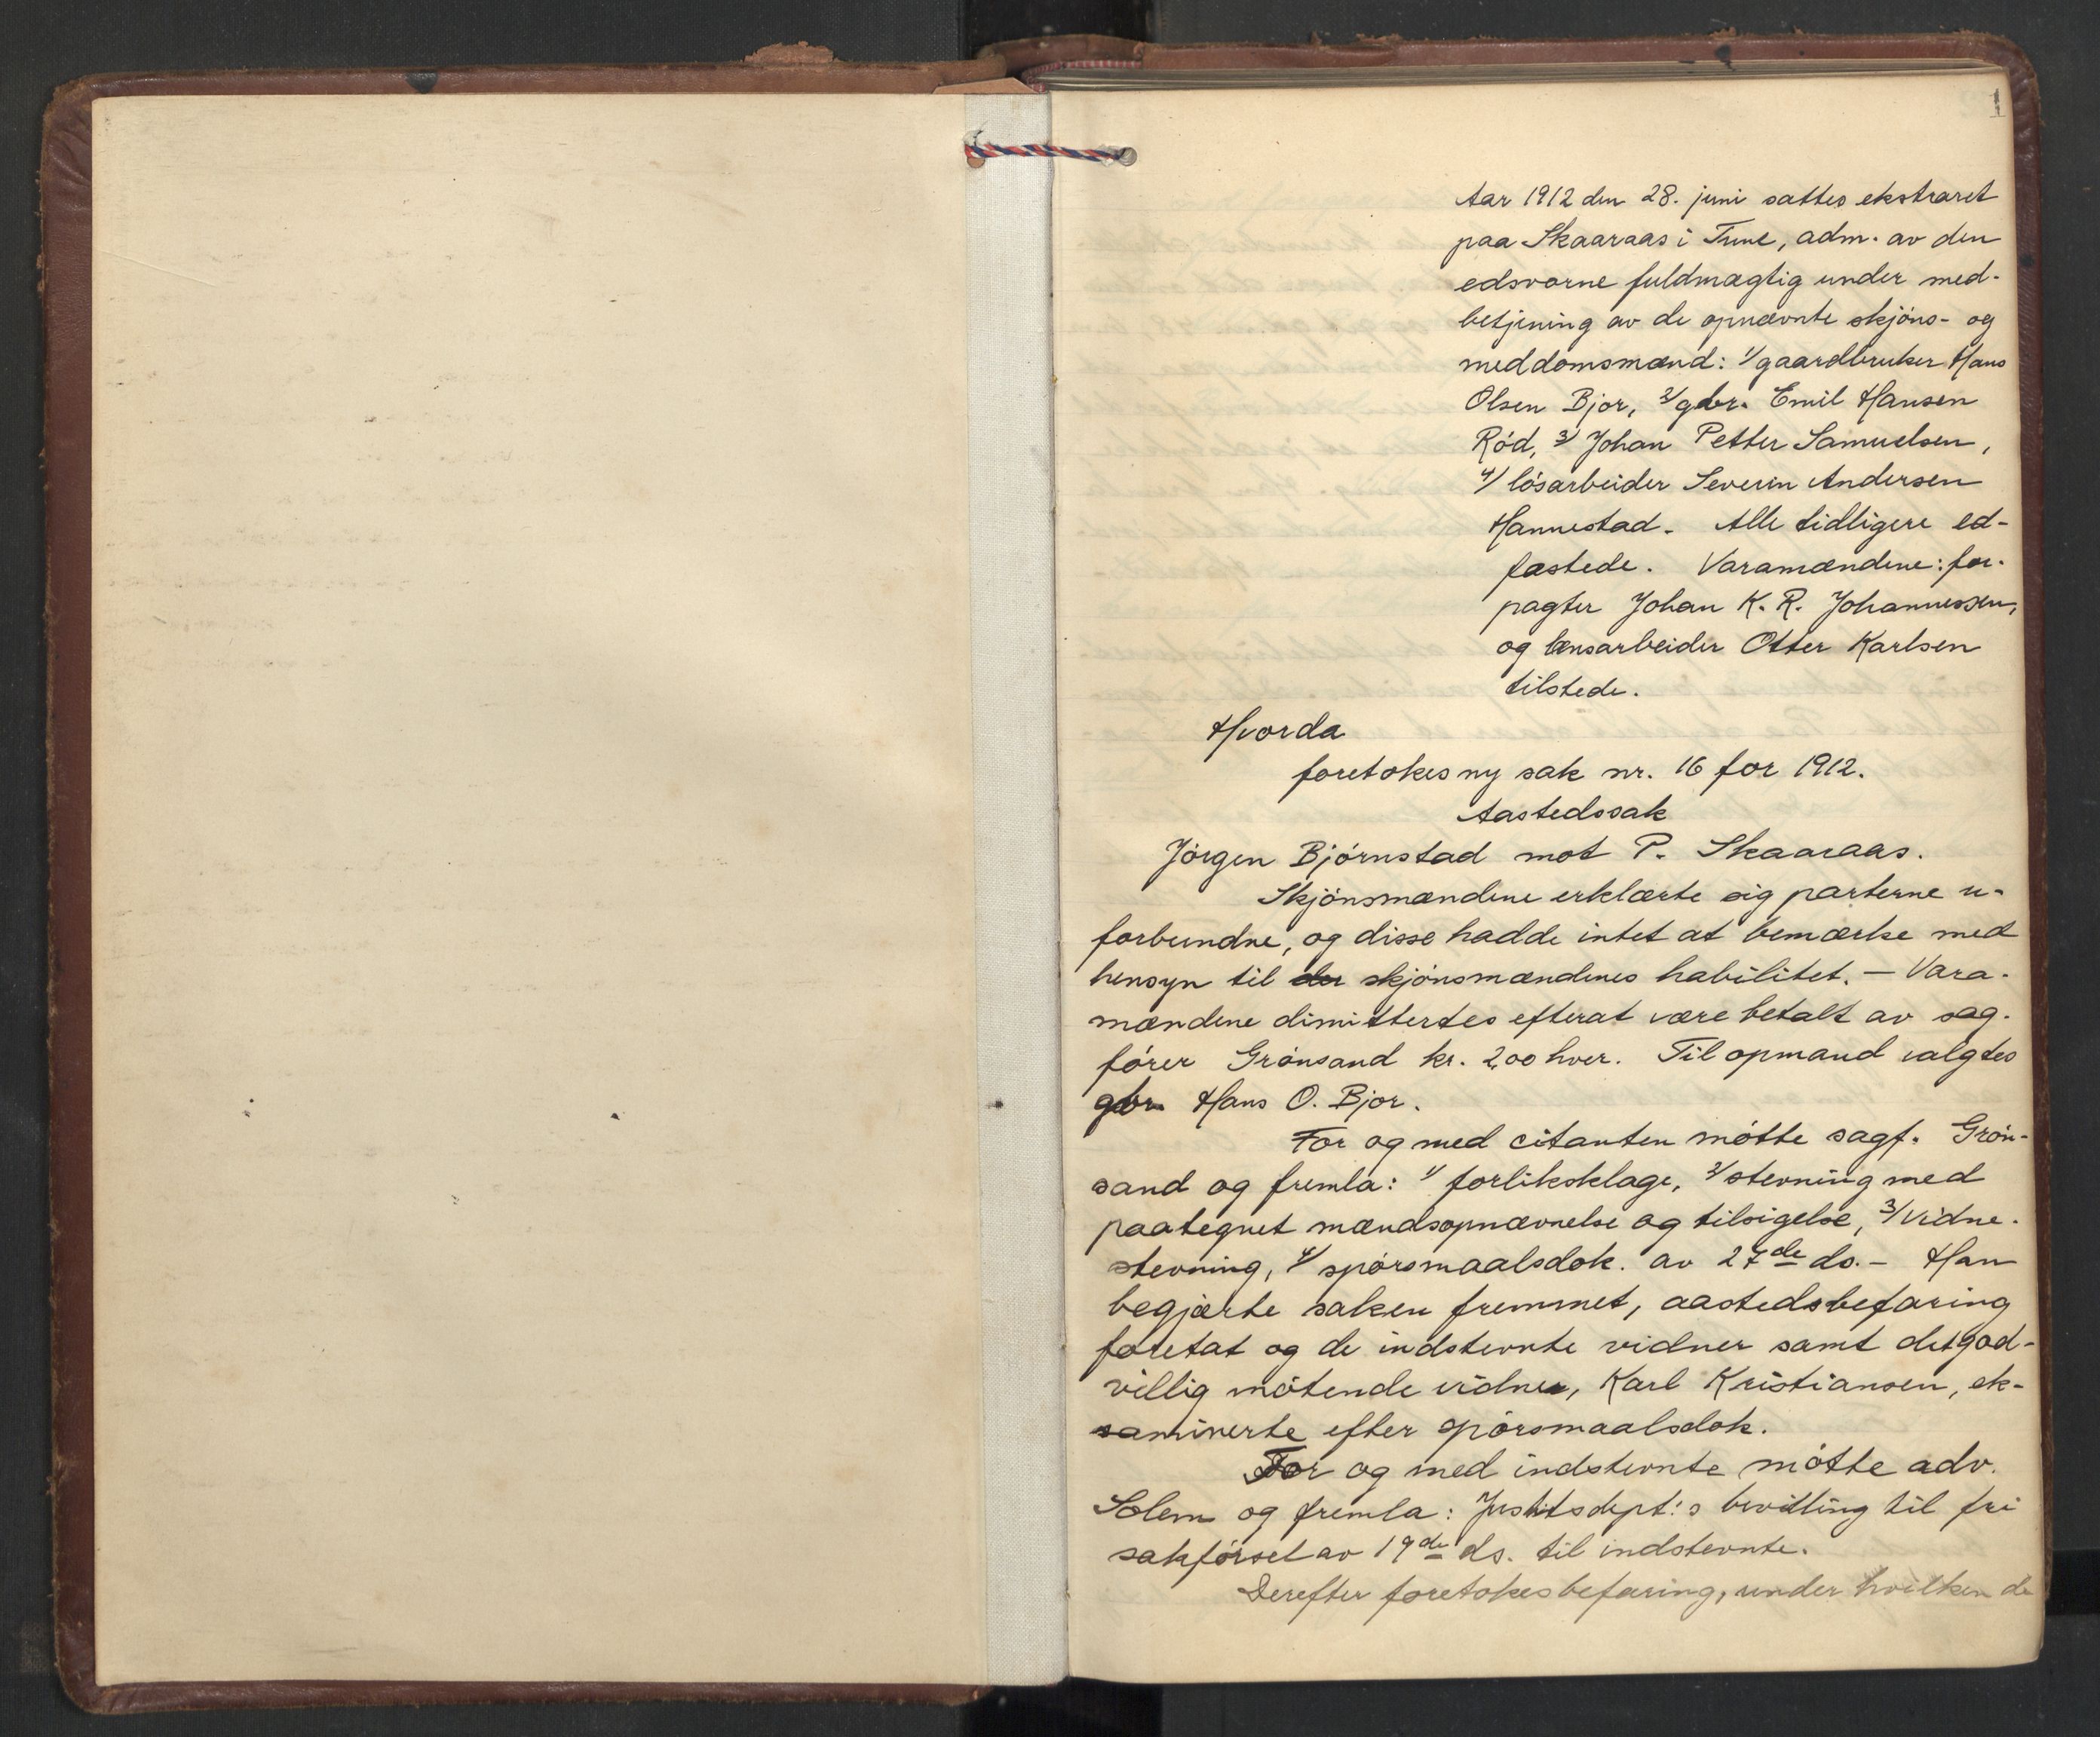 1
Aar 1912 den 28. juni sattes ekstraret
paa Skaaraas i Tune, adm. av den
edsvorne fuldmægtig under med-
betjening av de opnævnte skjöns- og
meddomsmænd: 1/ gaardbruker Hans
Olsen Bjor, 2/ gbr. Emil Hansen
Röd, 3/ Johan Petter Samuelsen,
4/ lösarbeider Severin Andersen
Hannestad. Alle tidligere ed-
fæstede. Varamændene: for-
pagter Johan K. R. Johannessen,
og lænsarbeider Otter Karlsen
tilstede.
Hvorda
foretokes ny sak nr. 16 for 1912.
Aastedssak
Jörgen Björnstad mot P. Skaaraas.
Skjönsmændene erklærte sig parterne u-
forbundne, og disse hadde intet at bemærke med
hensyn til der skjönsmændenes habilitet. — Vara-
mændene dimittertes efterat være betalt av sag-
förer Grönsand kr. 2,00 hver. Til opmand valgtes
gbr. Hans O. Bjor.
For og med citanten mötte sagf. Grön-
sand og fremla: 1/ forliksklage, 2/ stevning med
paategnet mændsopnævnelse og tilsigelse, 3/ vidne-
stevning, 4/ spörsmaalsdok. av 27de ds. - Han
begjærte saken fremmet, aastedsbefaring
foretat og de indstevnte vidner samt det god-
villig mötende vidne, Karl Kristiansen, ek-
saminerte efter spörsmaalsdok.
For og med indstevnte mötte adv.
Solem og fremla: Justitsdept:s bevilling til fri
sakförsel av 19de ds. til indstevnte.
Derefter foretokes befaring, under hvilken de